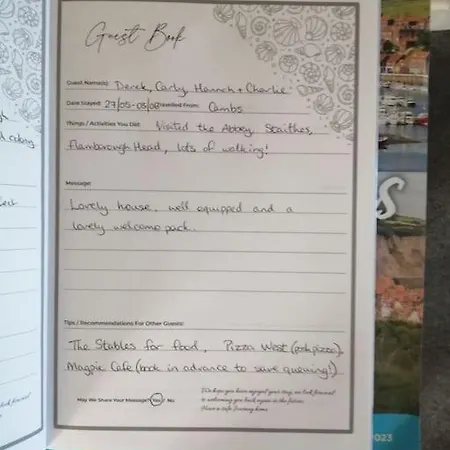 Guest Book
Guest Name(s): Derek, Carly, Hannah + Charlie
Date Stayed: 27/05-03/06 Travelled From: Cambs
Things / Activities You Did: Visited the Abbey, Staithes,
Flamborough Head, lots of walking!
Message:
Lovely house, well equipped and a
lovely welcome pack.
Tips / Recommendations For Other Guests:
The Stables for food, Pizza West (posh pizza),
Magpie Cafe (book in advance to save queuing!)
May We Share Your Message? Yes / No
We hope you have enjoyed your stay, we look forward
to welcoming you back again in the future.
Have a safe Journey home
2023